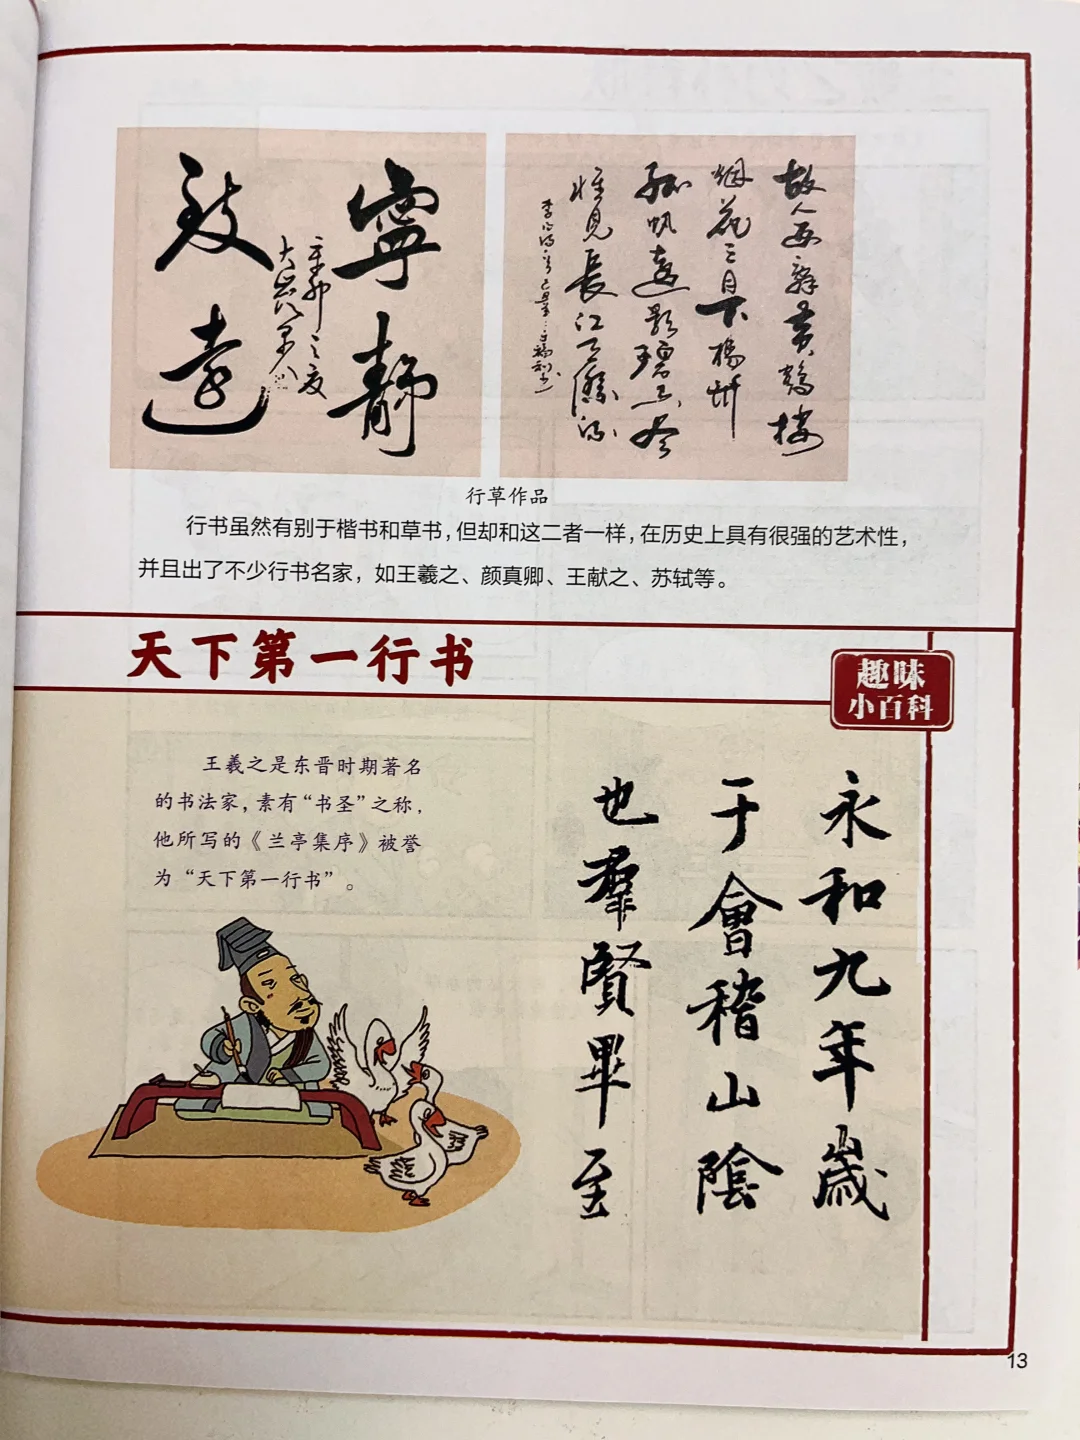 寧靜
辛卯之夏
致遠
故人西辭黃鶴樓
烟花三月下楊州
孤帆遠影碧空尽
惟見長江天際流
行草作品
行书虽然有别于楷书和草书，但却和这二者一样，在历史上具有很强的艺术性，
并且出了不少行书名家，如王羲之、颜真卿、王献之、苏轼等。
天下第一行书
趣味
小百科
王羲之是东晋时期著名
的书法家，素有“书圣”之称，
他所写的《兰亭集序》被誉
为“天下第一行书”。
永和九年歲
于會稽山陰
也羣賢畢至
13